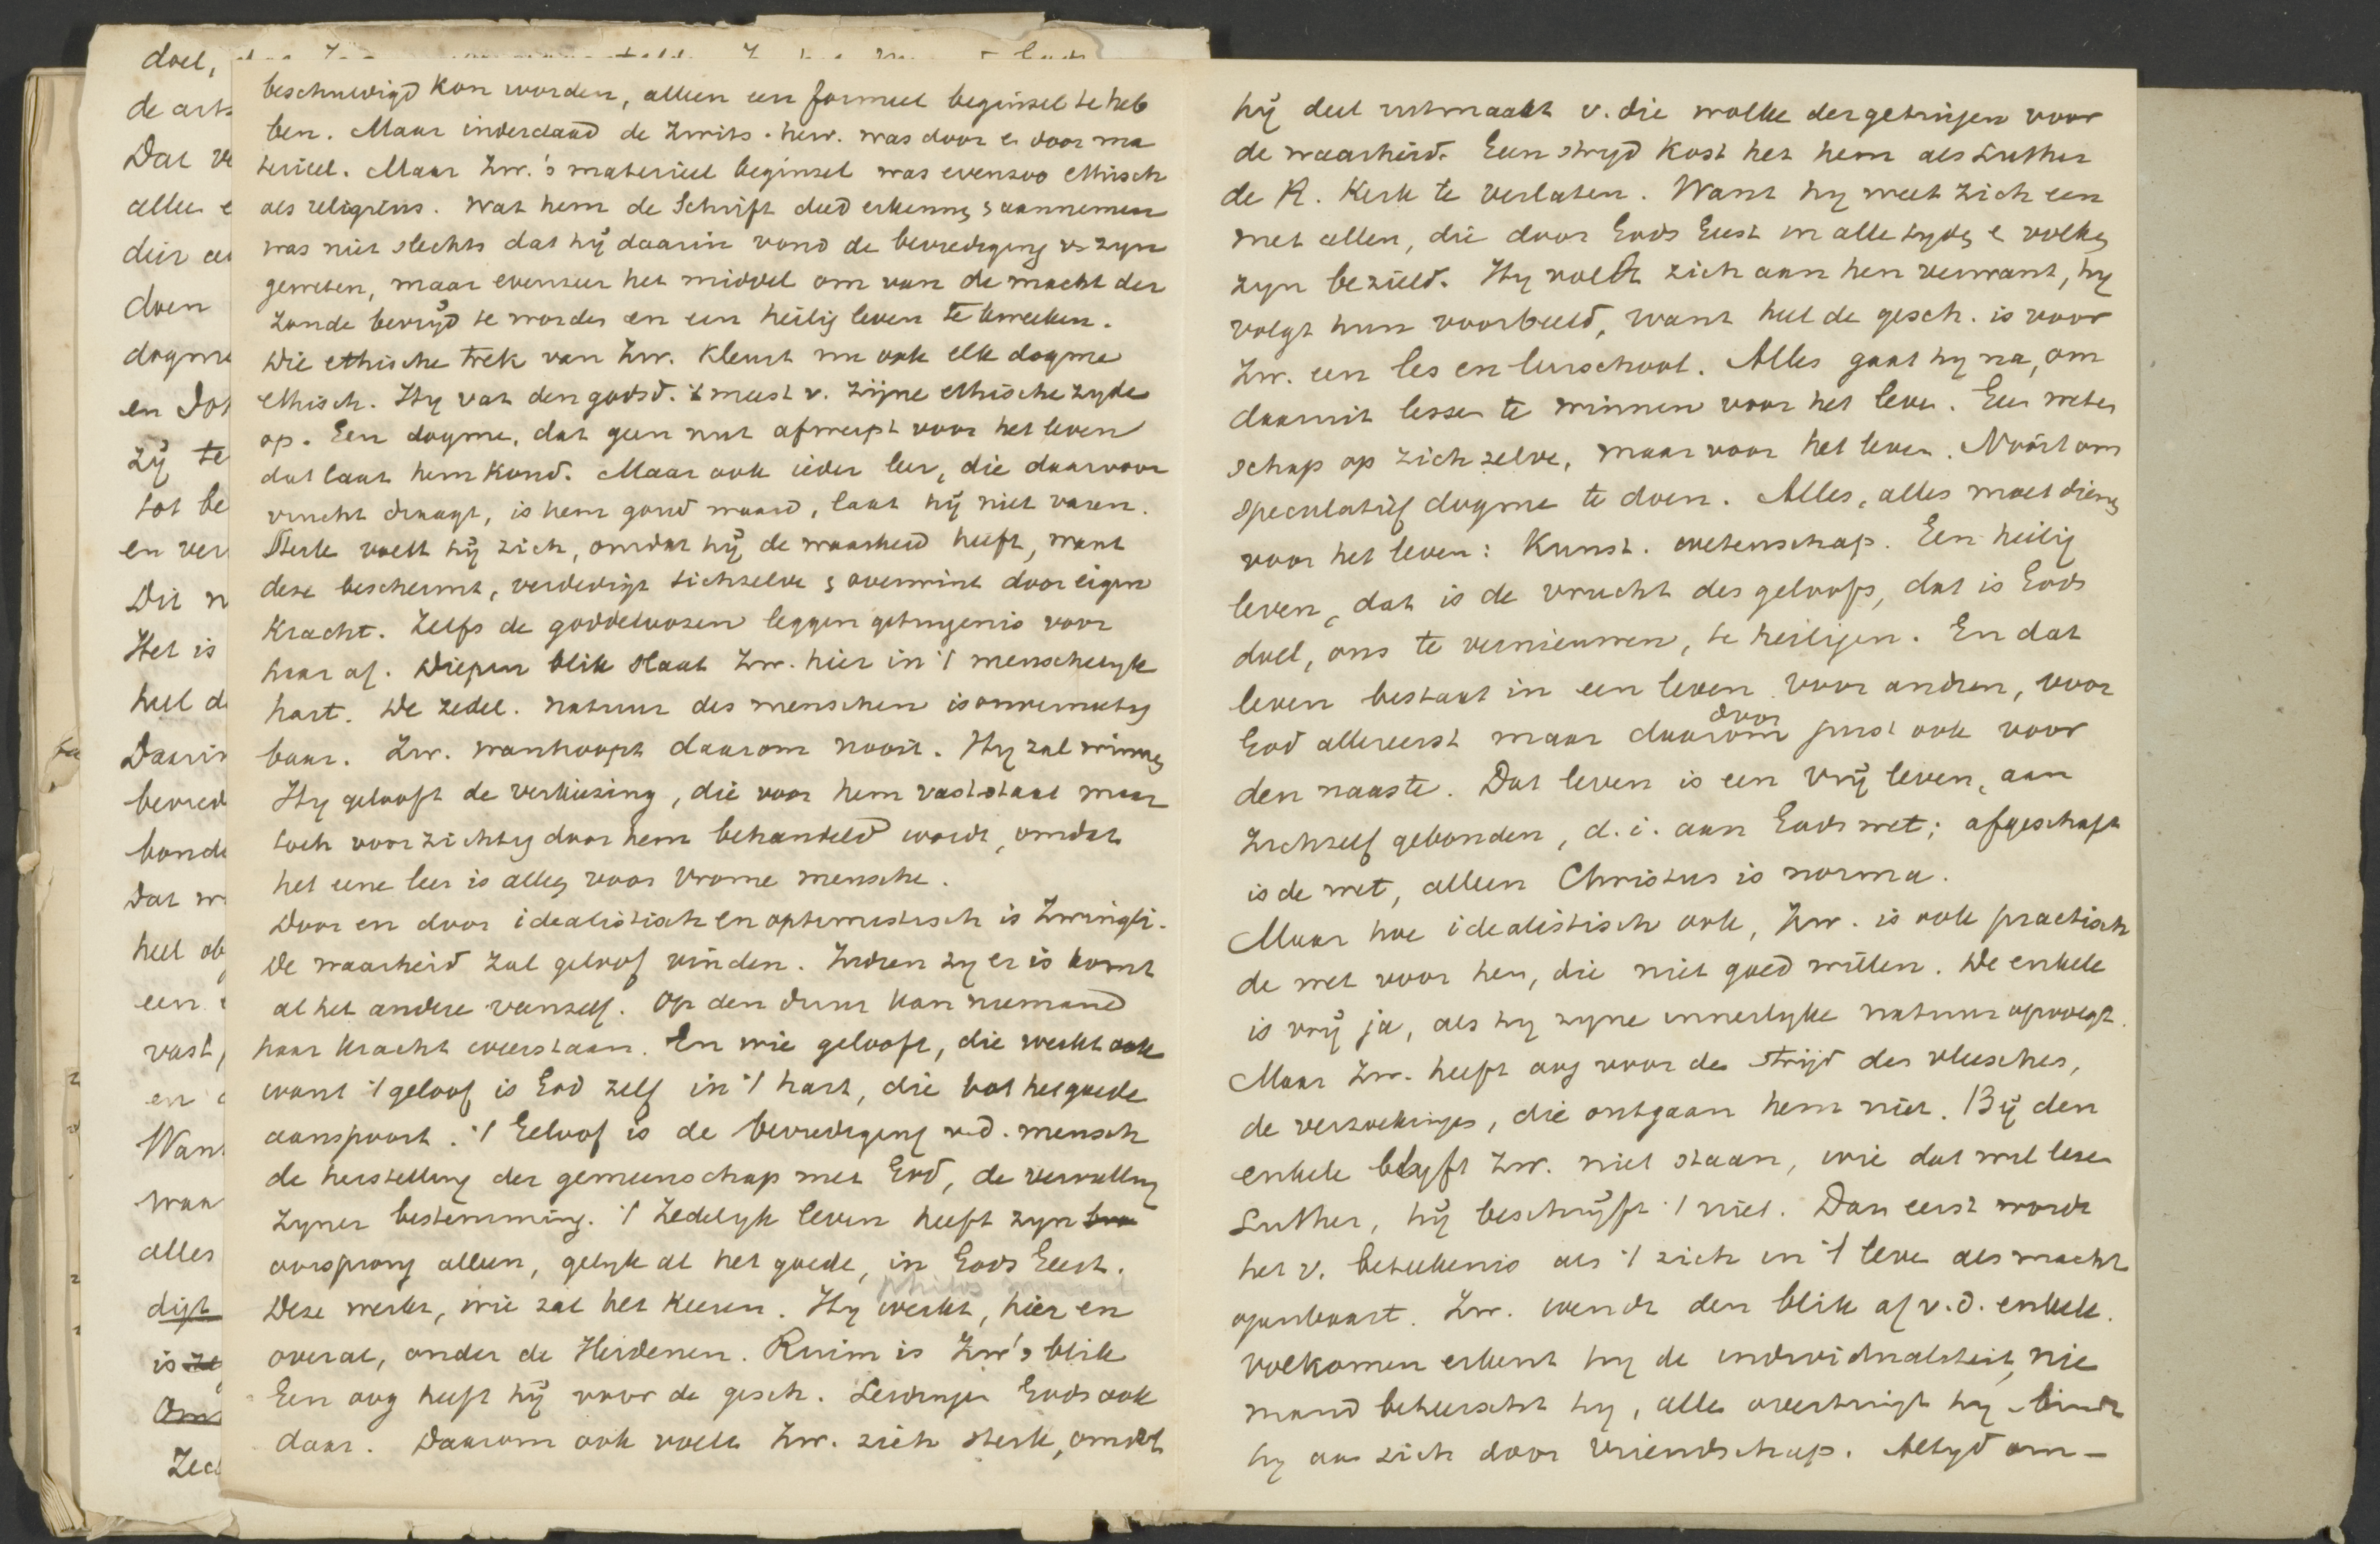 beschuldigd kon worden, alleen een formeel beginsel te heb
ben. Maar inderdaad de Zwits. herv. was door en door ma
terieel. Maar Zw.'s materieel beginsel was evenzoo ethisch
als religieus. Wat hem de Schrift deed erkennen & aannemen
was niet slechts dat hij daarin vond de bevrediging v. zyn
geweten, maar evenzeer het middel om van de macht der
zonde bevrijd te worden en een heilig leven te kweeken.
Die ethische trek van Zw. kleurt nu ook elk dogme
ethisch. Hy vat den godsd. 't meest v. zijne ethische zyde
op. Een dogme, dat geen nut afwerpt voor het leven
dat laat hem koud. Maar ook ieder leer, die daarvoor
vrucht draagt, is hem goud waard, laat hij niet varen.
Sterk voelt hij zich, omdat hij de waarheid heeft, want
deze beschermt, verdedigt zichzelve & overwint door eigen
kracht. Zelfs de goddeloozen leggen getuigenis voor
haar af. Diepen blik slaat Zw. hier in 't menschelyk
hart. De zedel. natuur des menschen is onvernietig
baar. Zw. wanhoopt daarom nooit. Hy zal winnen
Hy gelooft de verkiezing, die voor hem vaststaat maar
toch voorzichtig door hem behandeld wordt, omdat
het eene leer is alleen voor vrome mensche.
Door en door idealistisch en optimistisch is Zwingli.
De waarheid zal geloof vinden. Indien zy er is komt
al het andere vanzelf. Op den duur kan niemand
haar kracht weerstaan. En wie gelooft, die werkt ook
want 't geloof is God zelf in 't hart, die tot het goede
aanspoort. 't Geloof is de bevrediging v.d. mensch
de herstelling der gemeenschap met God, de vervulling
zyner bestemming. 't Zedelyk leven heeft zyn
oorsprong alleen, gelyk al het goede, in Gods Geest.
philos
Deze werkt, wie zal het keeren. Hy werkt, hier en
overal, onder de Heidenen. Ruim is Zw's blik
Een oog heeft hij voor de gesch. Leidingen Gods ook
daar. Daarom ook voelt Zw. zich sterk, omdat
hij deel uitmaakt v. die wolke der getuigen voor
de waarheid. Een stryd kost het hem als Luther
de R. Kerk te verlaten. Want hy weet zich een
met allen, die door Gods Geest in alle tyden & volken
zyn bezield. Hy voelt zich aan hen verwant, hy
volgt hun voorbeeld, want heel de gesch. is voor
Zw. een les en leerschool. Alles gaat hy na, om
daaruit lessen te winnen voor het leven. Geen weten
schap op zich zelve, maar voor het leven. Nooit om
speculatief dogme te doen. Alles, alles moet dienen
voor het leven: Kunst. wetenschap. Een heilig
leven, dat is de vrucht des geloofs, dat is Gods
doel, ons te vernieuwen, te heiligen. En dat
leven bestaat in een leven voor andren, voor
door
God allereerst maar daarom juist ook voor
den naaste. Dat leven is een vrij leven, aan
zichzelf gebonden, d.i. aan Gods wet; afgeschaft
is de wet, alleen Christus is norma.
Maar hoe idealistisch ook, Zw. is ook practisch
de wet voor hen, die niet goed willen. De enkele
is vrij ja, als hy zyne innerlyke natuur opvolgt.
Maar Zw. heeft oog voor den strijd des vleesches,
de verzoekingen, die ontgaan hem niet. Bij den
enkele blyft Zw. niet staan, wie dat wil leze
Luther, hij beschrijft 't niet. Dan eerst wordt
het v. beteekenis als 't zich in 't leven als macht
openbaart. Zw. wendt den blik af v.d. enkele.
volkomen erkent hy de individualiteit, nie
mand beheerscht hy, allen overtuigt hy bindt
hy aan zich door vriendschap. Altyd om-
doel,
de
Dat
alle
dier
doen
dogme
en
zij te
tot be
en ver
Dit
Het is
heel d
Daarin
bevred
bonde
Dat
heel
een
vast,
en
Want
waar
alles
is
Zed